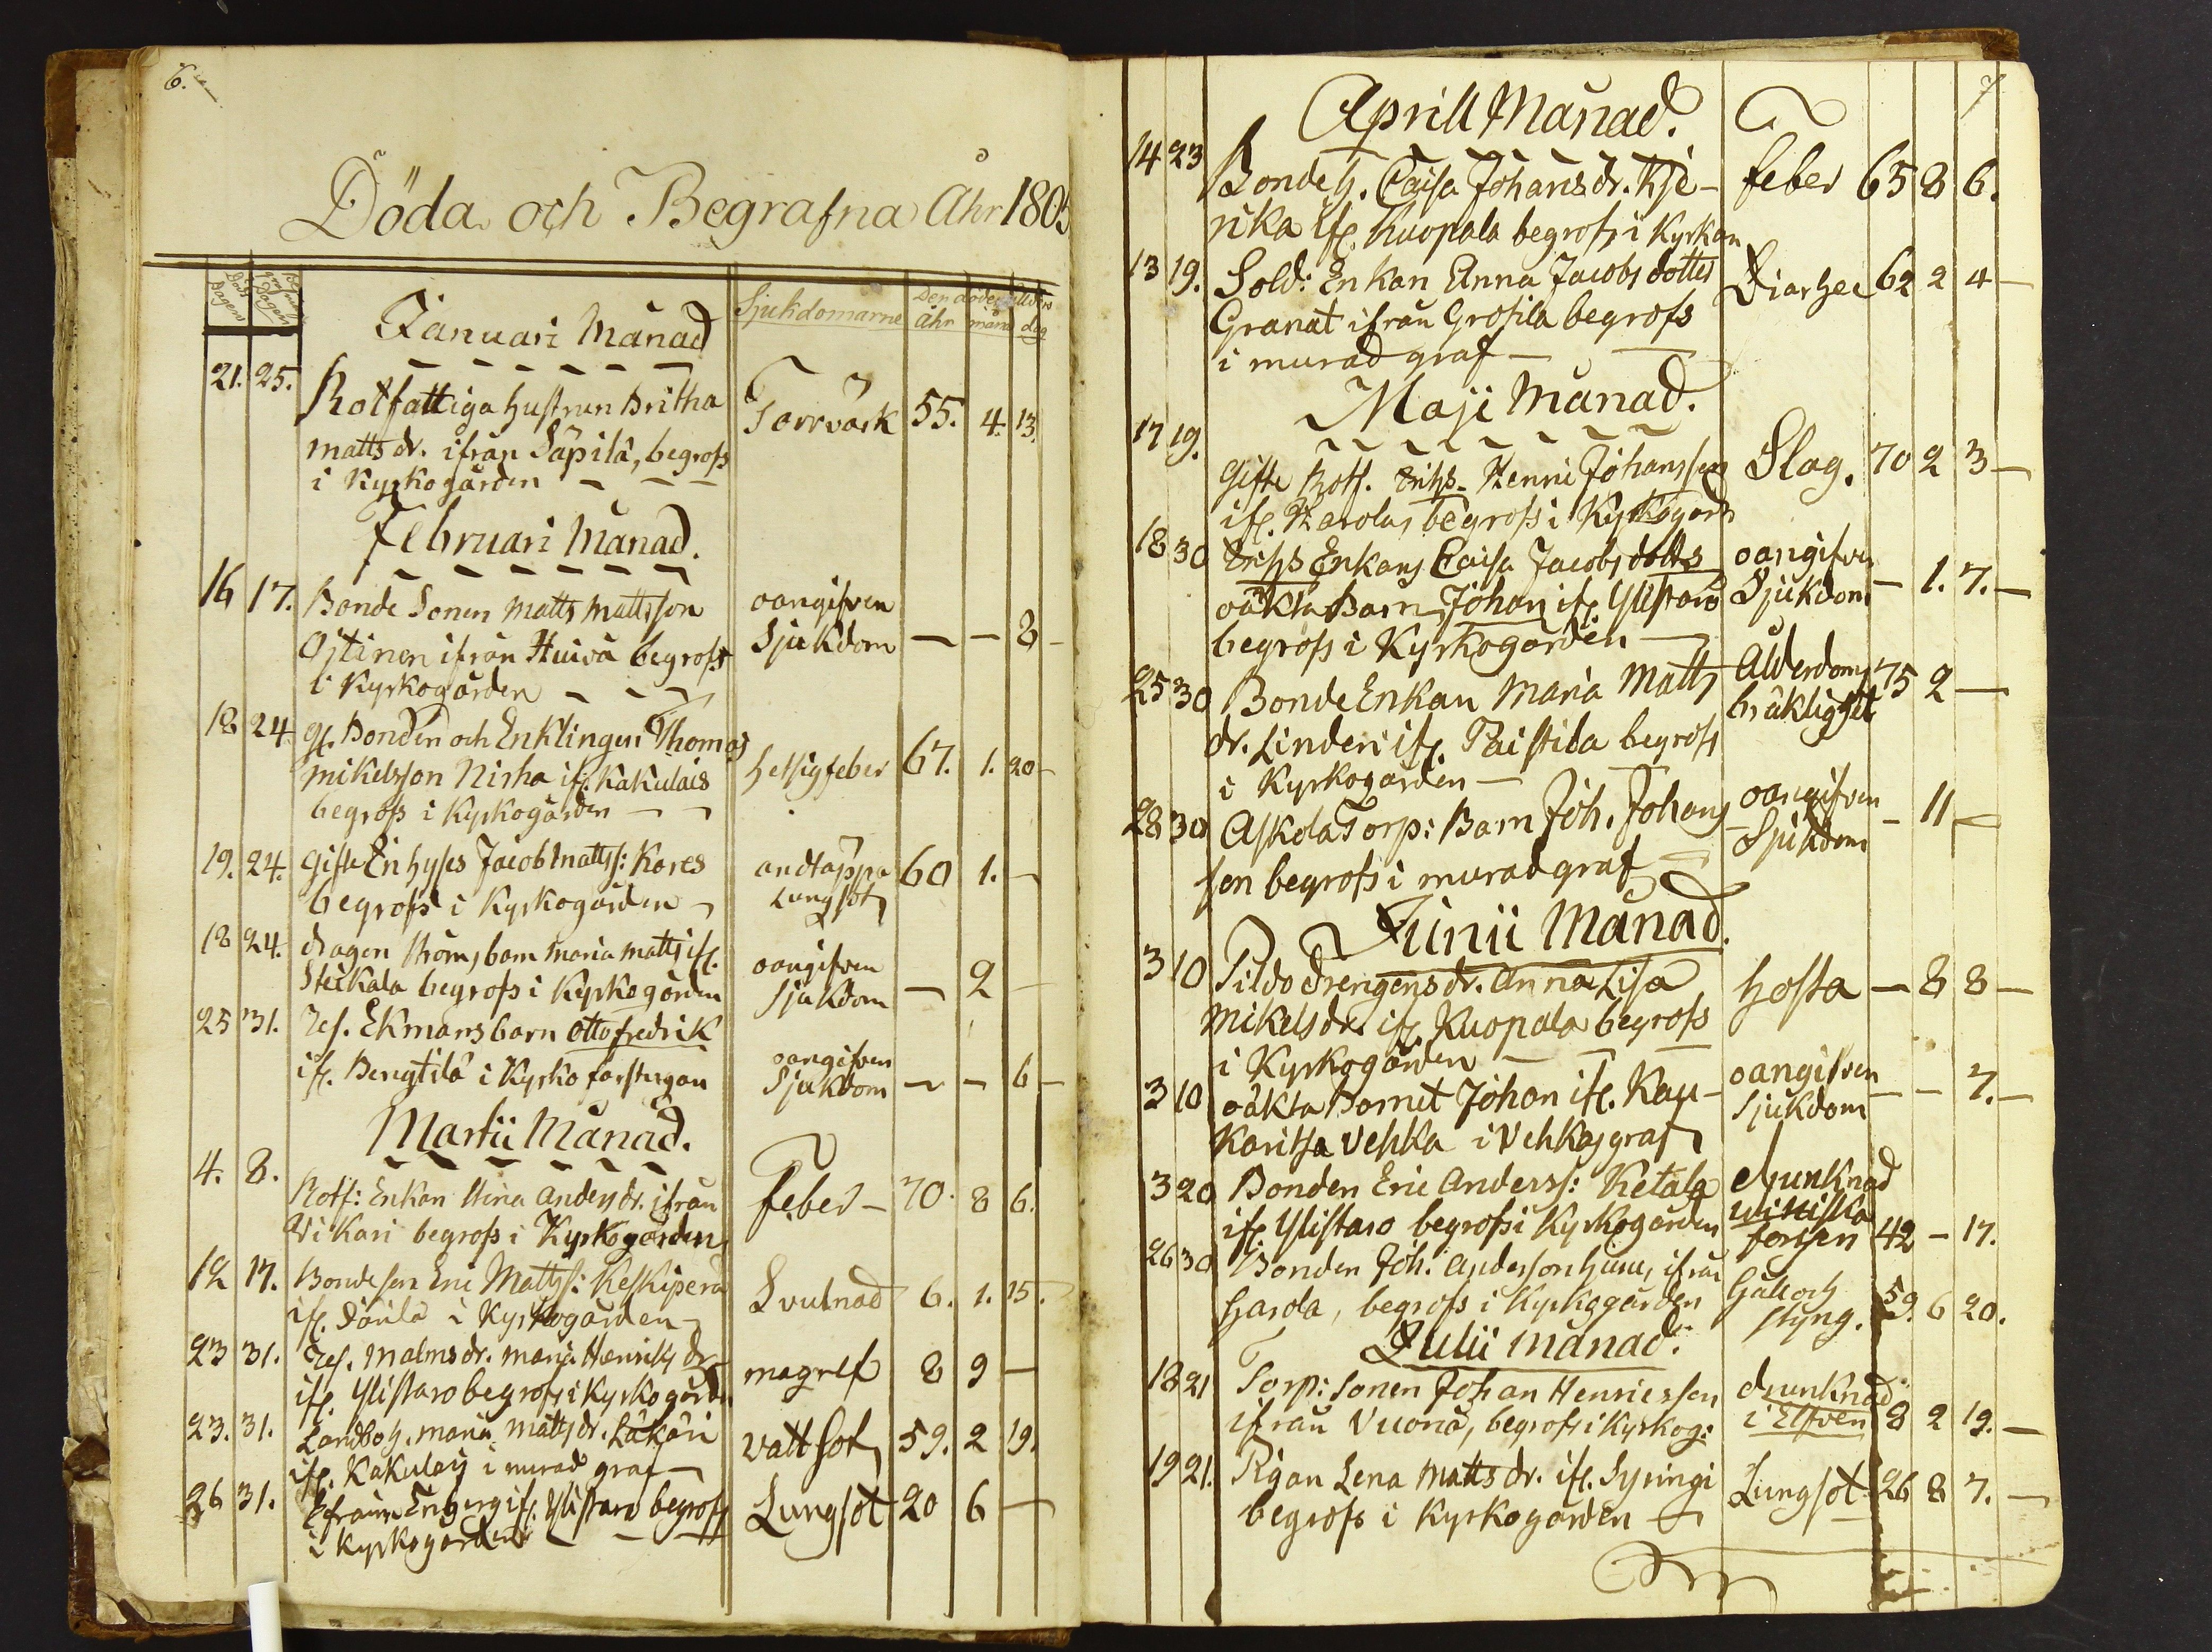 6.
Döda och Begrafna Åhr 1805
Döds Dagen
Begrafn: Dagen
Sjukdomarne
Den dödes Ålder
åhr
mån
dag
Januari Månad
21. 25. Rotfattiga hustrun Britha
matts dr. ifrån Säpilä, begrofs
i Kyrkogården
Torrvärk 55. 4. 13.
Februari Månad.
16 17. Bonde Sonen Matts Mattsson
Ojtinen ifrån Huiva begrofs
i Kyrkogården
oangifven
Sjukdom — — 8 —
18 24. gl. Bonden och Enklingen Thomas
Mikelsson Nirha if. Kakulais
begrofs i Kyrkogården
hetsigfeber 67. 1. 20 —
19. 24. Gifte Einhyses Jacob Matts: Kares
begrofs i Kyrkogården
andtäppa
Lungsot 60 1. —
18 24. dragon Ströms barn Maria matts if.
Steikala begrofs i Kyrkogården
oangifven
Sjukdom — 2 —
25 31. Ekmans barn Otto fredrik
if. Bengtilä i Kyrko farstugan
oangifven
Sjukdom — — 6 —
Martii Månad.
4. 8. Rotf: Enkan Stina Anders dr. ifrån
Vikari begrofs i Kyrkogården
Feber — 70. 8 6.
12 17. Bonde son Eric Matts: Keskiperä
if. i Kyrkogården
Svulnad 6. 1. 15.
23 31. Malms dr. Maria Henriks dr
if. Ylistaro begrofs i Kyrkogården
magref 8 9 —
23. 31. Landboh. maria matts dr. Läkäri
if. Kakulais i murad graf
Vattsot 59. 2 19.
26 31. Efraim Enberg if. Ylistaro begrofs
i Kyrkogården
Lungsot 20 6 —
7
Aprill Månad.
14 23 Bondeh. Caisa Johans dr. Kje-
rika if. Kuopala begrofs i Kyrkan
feber 65 8 6.
13 19. Sold: Enkan Anna Jacobs dotter
Granat ifrån Grosila begrofs
i murad graf —
Diarhee 62 2 4 —
Maji Månad.
17 19. Gifte Rotf. Henric Johansson
if. Harola, begrofs i Kyrkogård
Slag. 70 2 3 —
18 30 Enkans Caisa Jacobs dotters
oäkta Barn Johan if. Ylistaro
begrofs i Kyrkogården —
oangifven
Sjukdom — 1. 7. —
25 30 Bonde Enkan Maria Matts
dr. Linden if. Paistila begrofs
i Kyrkogården —
Ålderdoms
bräklighet 75 2 —
28 30 Askola Torp: Barn Joh. Johans
son begrofs i murad graf
oangifven
Sjukdom — 11 —
Junii Månad.
3 10 Pildo Drengens dr. Anna Lisa
Mikels dr. if. Kuopala begrofs
i Kyrkogården —
hosta — 8 8 —
3 10 oäkta Barnet Johan if. Kau-
karitsa Vehka i Vehkas graf
oangifven
Sjukdom — — 7. —
3 20 Bonden Eric Anders: Ketala
if. Ylistaro begrofs i Kyrkogården
drunknad
forssen 42 — 17.
26 30 Bonden Joh: Andersson ifrån
Harola, begrofs i Kyrkogården
håll och
styng. 59. 6 20.
Julii Månad.
18 21 Torp: Sonen Johan Henricsson
ifrån Vuona, begrofs i Kyrkog:
drunknad
i Elfven 8 2 19. —
19 21. Pigan Lena Matts dr. if. Syringi
begrofs i Kyrkogården
Lungsot 26 8 7. —